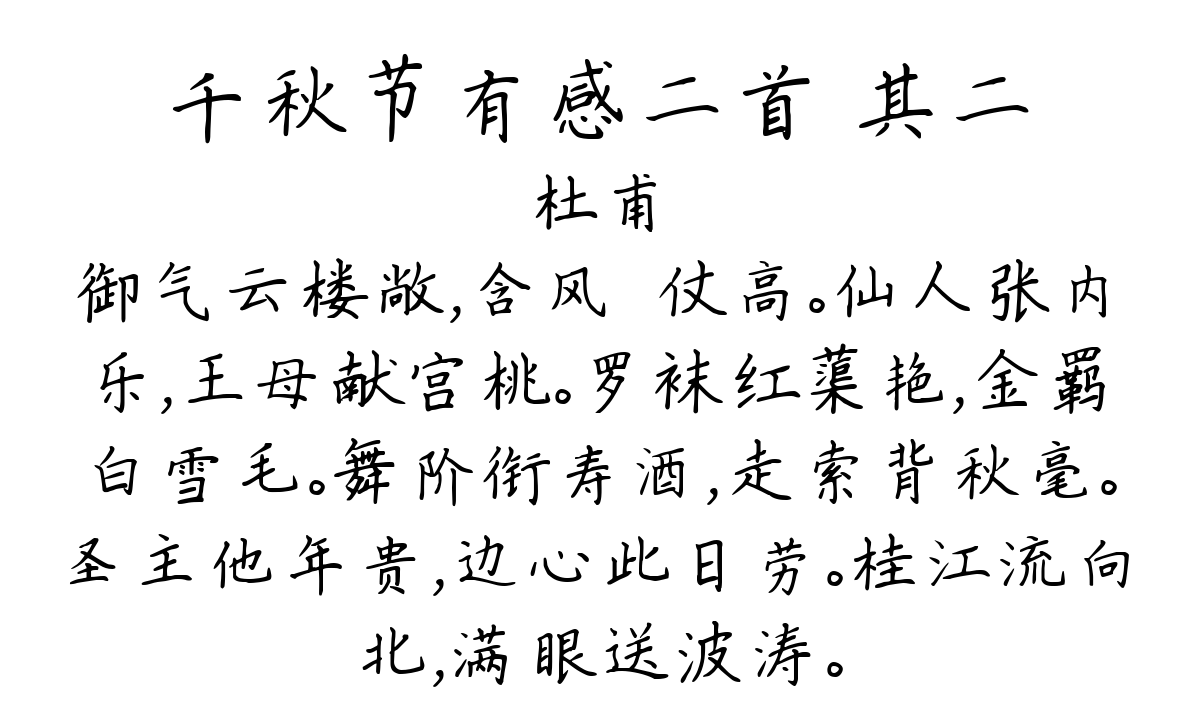 千秋节有感二首 其二
杜甫
御气云楼敞,含风 仗高。仙人张内
乐,王母献宫桃。罗袜红蕖艳,金羁
白雪毛。舞阶衔寿酒,走索背秋毫。
圣主他年贵,边心此日劳。桂江流向
北,满眼送波涛。